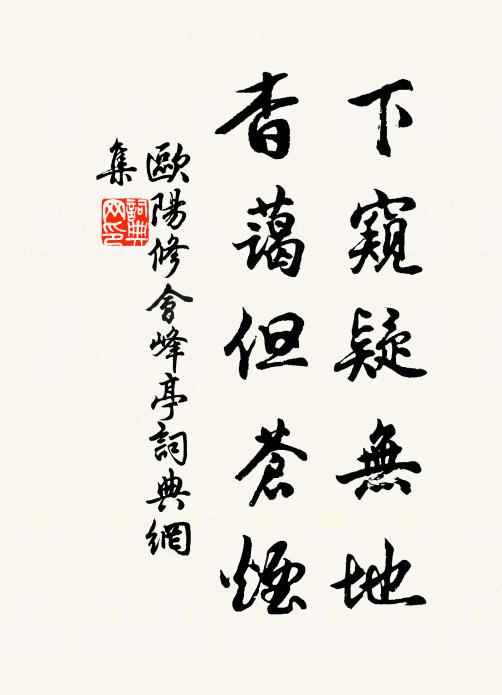 下窺疑無地
杳藹但蒼煙
歐陽修會峰亭詞典網
集
詞典网印